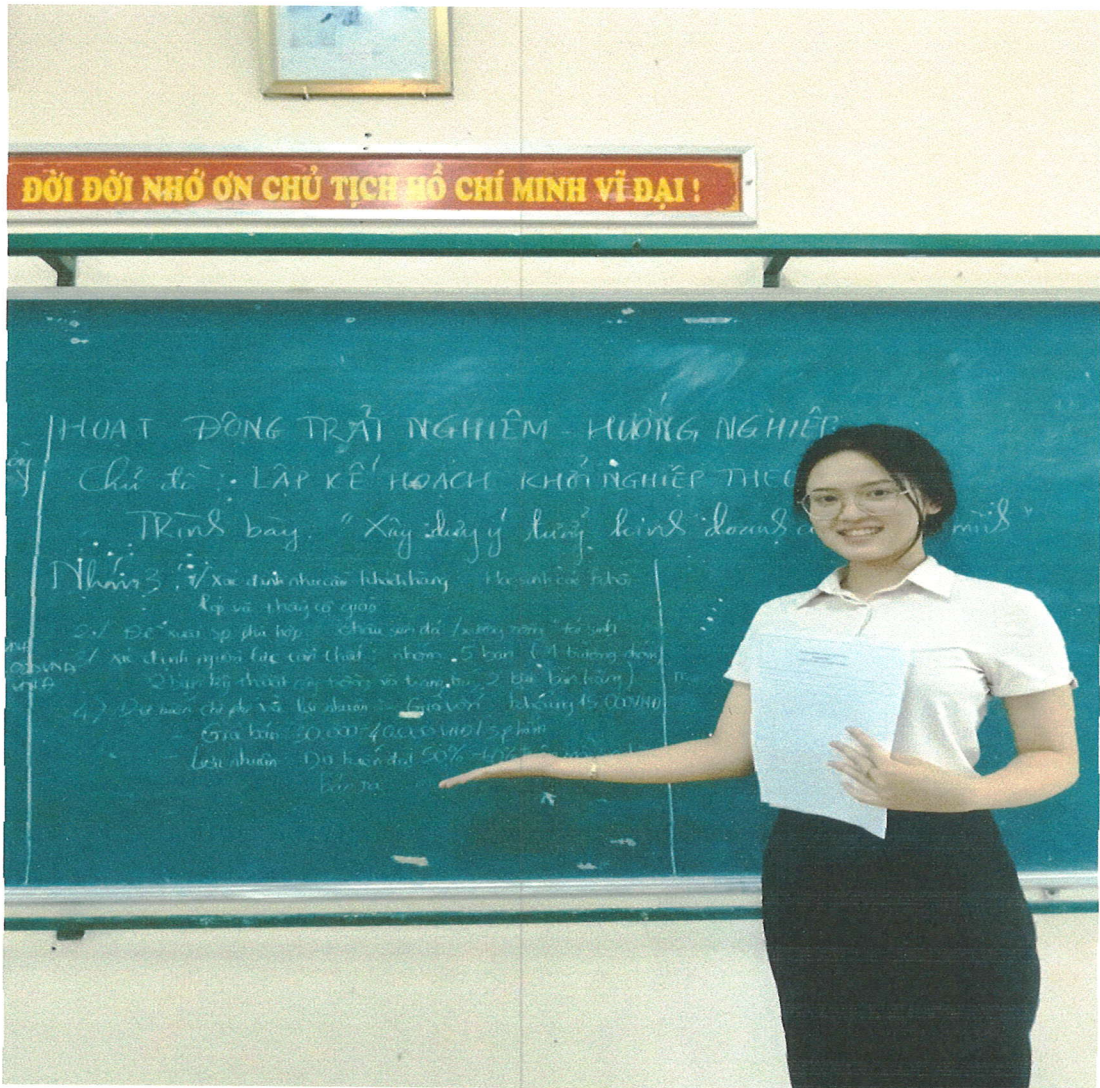 ĐỜI ĐỜI NHỚ ƠN CHỦ TỊCH HỒ CHÍ MINH VĨ ĐẠI !
HOẠT ĐỘNG TRẢI NGHIỆM - HƯỚNG NGHIỆP
Chủ đề : LẬP KẾ HOẠCH KHỞI NGHIỆP THEO
Trình bày "Xây dựng ý tưởng kinh doanh mình"
Nhóm 3 : 1/ Xác định nhu cầu khách hàng Học sinh các khối
lớp và thầy cô giáo
2/ Đề xuất sp phù hợp chậu sen đá / xương rồng tái sinh
3/ Xác định nguồn lực cần thiết : nhóm 5 bạn (1 trưởng nhóm
2 bạn kỹ thuật và trang trí 2 bạn bán hàng)
4) Dự kiến chi phí và lợi nhuận : Giá vốn khoảng 15.000VNĐ
- Giá bán 30.000 - 40.000 VNĐ/sphẩm
- Lợi nhuận Dự kiến đạt 50%
bán ra